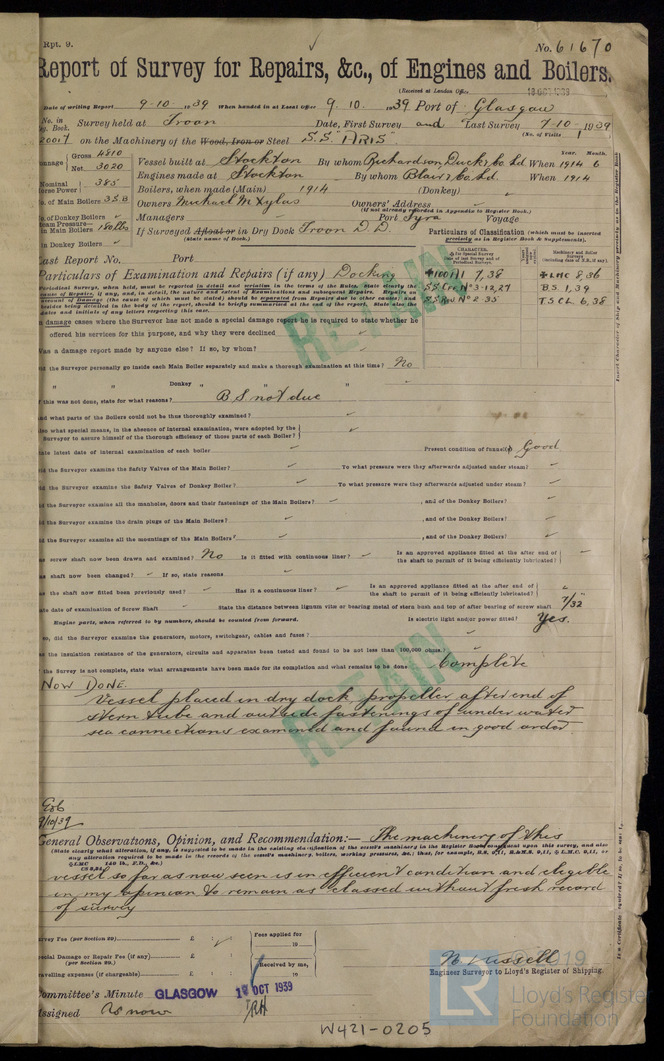 Rpt. 9.
No. 61670
Report of Survey for Repairs, &c., of Engines and Boilers.
(Received at London Office 18 OCT 1939
Date of writing Report 9-10-1939 When handed in at Local Office 9.10.1939 Port of Glasgow
No. in Survey held at Troon Date, First Survey and Last Survey 7-10-1939
Reg. Book. (No. of Visits 1)
20017 on the Machinery of the Wood, Iron or Steel S.S. "ARIS"
Tonnage Gross 4810 Net 3020
Vessel built at Stockton By whom Richardson, Duck & Co. Ld. When Year. Month. 1914 6
Engines made at Stockton By whom Blair & Co. Ld. When 1914
Nominal Horse Power 385
Boilers, when made (Main) 1914 (Donkey)
No. of Main Boilers 3 S.B
Owners Michael M Xylas Owners' Address
(if not already recorded in Appendix to Register Book.)
No. of Donkey Boilers
Managers Port Syra Voyage
Steam Pressure— in Main Boilers 180 lbs
If Surveyed Afloat or in Dry Dock Troon D D
(State name of Dock.)
in Donkey Boilers
Particulars of Classification (which must be inserted precisely as in Register Book & Supplements).
Last Report No. Port
Particulars of Examination and Repairs (if any) Docking
CHARACTER.
+100A1 7,38
S.S. No 3-12,27
S.S. No 2-35
+LMC 8,36
B.S. 1,39
T.S CL. 6,38
Periodical Surveys, when held, must be reported in detail and seriatim in the terms of the Rules, state clearly the
cause of Repairs, if any, and, in detail, the nature and extent of Examinations and subsequent Repairs. Repairs on
account of Damage (the cause of which must be stated) should be separated from Repairs due to other causes; and
besides being detailed in the body of the report, should be briefly summarised at the end of the report. State also the
dates and initials of any letters respecting this case.
RETAIN
In damage cases where the Surveyor has not made a special damage report he is required to state whether he
offered his services for this purpose, and why they were declined
Was a damage report made by anyone else? If so, by whom?
Did the Surveyor personally go inside each Main Boiler separately and make a thorough examination at this time? No
" " Donkey " " "
If this was not done, state for what reasons? B S not due
And what parts of the Boilers could not be thoroughly examined?
Also what special means, in the absence of internal examination, were adopted by the
Surveyor to assure himself of the thorough efficiency of those parts of each Boiler?
State latest date of internal examination of each boiler Present condition of funnel(s) Good
Did the Surveyor examine the Safety Valves of the Main Boiler? To what pressure were they afterwards adjusted under steam?
Did the Surveyor examine the Safety Valves of Donkey Boiler? To what pressure were they afterwards adjusted under steam?
Did the Surveyor examine all the manholes, doors and their fastenings of the Main Boilers? , and of the Donkey Boilers?
Did the Surveyor examine the drain plugs of the Main Boilers? , and of the Donkey Boilers?
Did the Surveyor examine all the mountings of the Main Boilers? , and of the Donkey Boilers?
Has screw shaft now been drawn and examined? No Is it fitted with continuous liner? Is an approved appliance fitted at the after end of the shaft to permit of it being efficiently lubricated?
Has shaft now been changed? If so, state reasons
Has the shaft now fitted been previously used? Has it a continuous liner? Is an approved appliance fitted at the after end of the shaft to permit of it being efficiently lubricated?
State date of examination of Screw Shaft State the distance between lignum vitæ or bearing metal of stern bush and top of after bearing of screw shaft 7/32"
Engine parts, when referred to by numbers, should be counted from forward. Is electric light and/or power fitted? Yes.
If so, did the Surveyor examine the generators, motors, switchgear, cables and fuses?
Has the insulation resistance of the generators, circuits and apparatus been tested and found to be not less than 100,000 ohms?
If the Survey is not complete, state what arrangements have been made for its completion and what remains to be done Complete
RETAIN
NOW DONE.
Vessel placed in dry dock propeller after end of
stern tube and outside fastenings of under water
sea connections examined and found in good order
9/10/39
General Observations, Opinion, and Recommendation:— The machinery of this
(State clearly what alteration, if any, is suggested to be made in the existing classification of the vessel's machinery in the Register Book consequent upon this survey, and also
any alteration required to be made in the records of the vessel's machinery, boilers, working pressures, &c.; that, for example, B.S. 9,11, B.&M.S. 9,11, & L.M.C. 9,11, or
& LMC 140 lb., F.D., &c.)
CS 9,34
vessel so far as now seen is in efficient condition and eligible
in my opinion to remain as classed without fresh record
of survey
Survey Fee (per Section 29) £ : :
Fees applied for 19
Special Damage or Repair Fee (if any) £ : :
(per Section 29.)
Received by me, 19
Travelling expenses (if chargeable) £ : :
N. Russell
Engineer Surveyor to Lloyd's Register of Shipping.
Committee's Minute GLASGOW 17 OCT 1939
Assigned As now
© 2019
LR Lloyd's Register Foundation
W421-0205